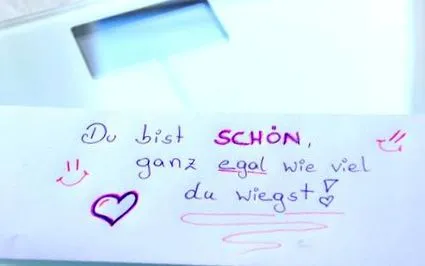 Du bist SCHÖN,
ganz egal wie viel
du wiegst!